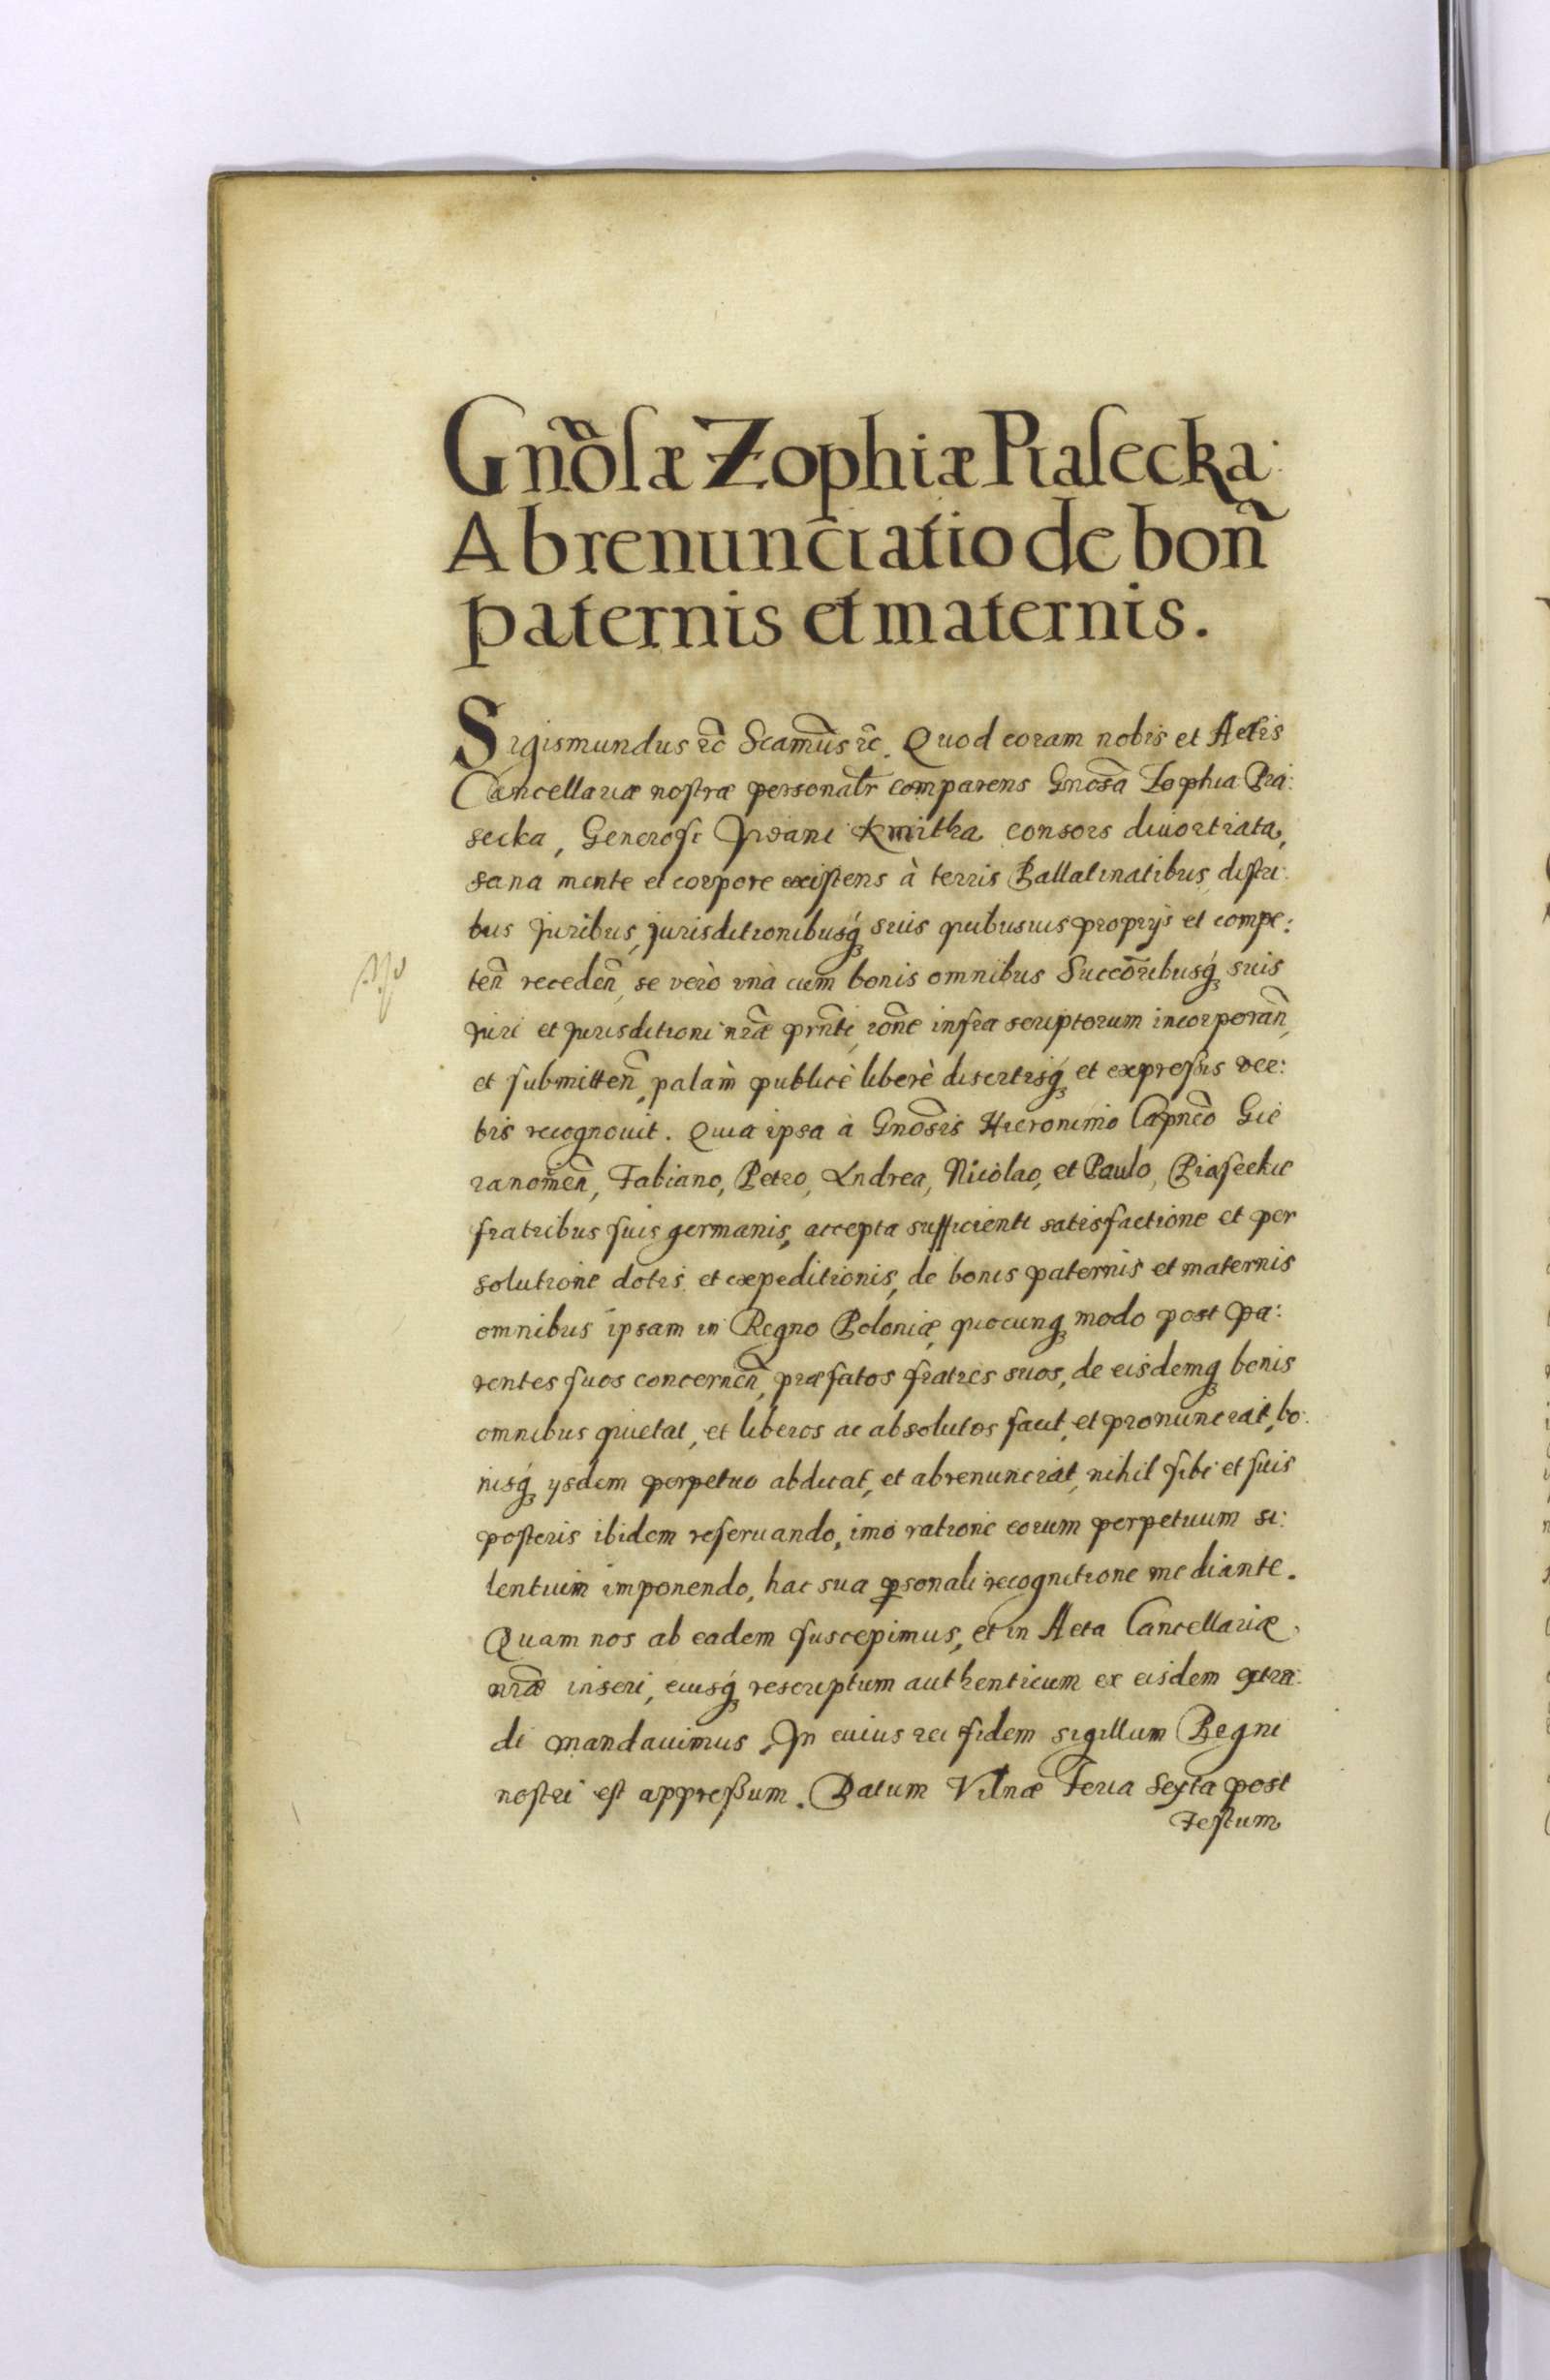 Gnõsæ Zophiæ Piasecka:
Abrenunciatio de boñ
paternis et maternis.
Sigismundus rc̃ Scamũs rc̃. Quod coram nobis et Actis
Cancellariæ nostræ personalr̃ comparens Gnosã Zophia Pia:
secka, Generosi Iwani Kmitha consors diuortiata,
sana mente et corpore existens à terris Pallatinatibus, distri:
bus Iuribus, jurisditionibusq́ suis quibusuis proprijs et compe:
teñ recedeñ, se verò vnà cum bonis omnibus Succõribusq́ suis
juri et jurisditioni nrãe prñti, rõne infra scriptorum incorporañ,
et submitteñ, palàm publicè liberè disertisq́ et expressis ver:
bis recognouit. Quia ipsa à Gnosĩs Hieronimo Capneõ Gie
ranomeñ, Fabiano, Petro, Andrea, Nicolao, et Paulo, Piasecku
fratribus suis germanis, accepta sufficienti satisfactione et per
solutione dotis et expeditionis, de bonis paternis et maternis
omnibus ipsam in Regno Poloniæ, quocunq modo post pa:
rentes suos concerneñ, præfatos fratres suos, de eisdemq bonis
omnibus quietat, et liberos ac absolutos facit, et pronunciat, bo:
nisq́ ysdem perpetuo abdicat, et abrenunciat, nihil sibi et suis
posteris ibidem reseruando, imo ratione eorum perpetuum si:
lentium imponendo, hac sua psonali recognitione mediante.
Quam nos ab eadem suscepimus, et in Acta Cancellariæ
nrãe inseri, eiusq́ rescriptum authenticum ex eisdem extra:
di mandauimus. In cuius rei fidem sigillum Regni
nostri est appressum. Datum Vilnæ Feria Sexta post
Festum